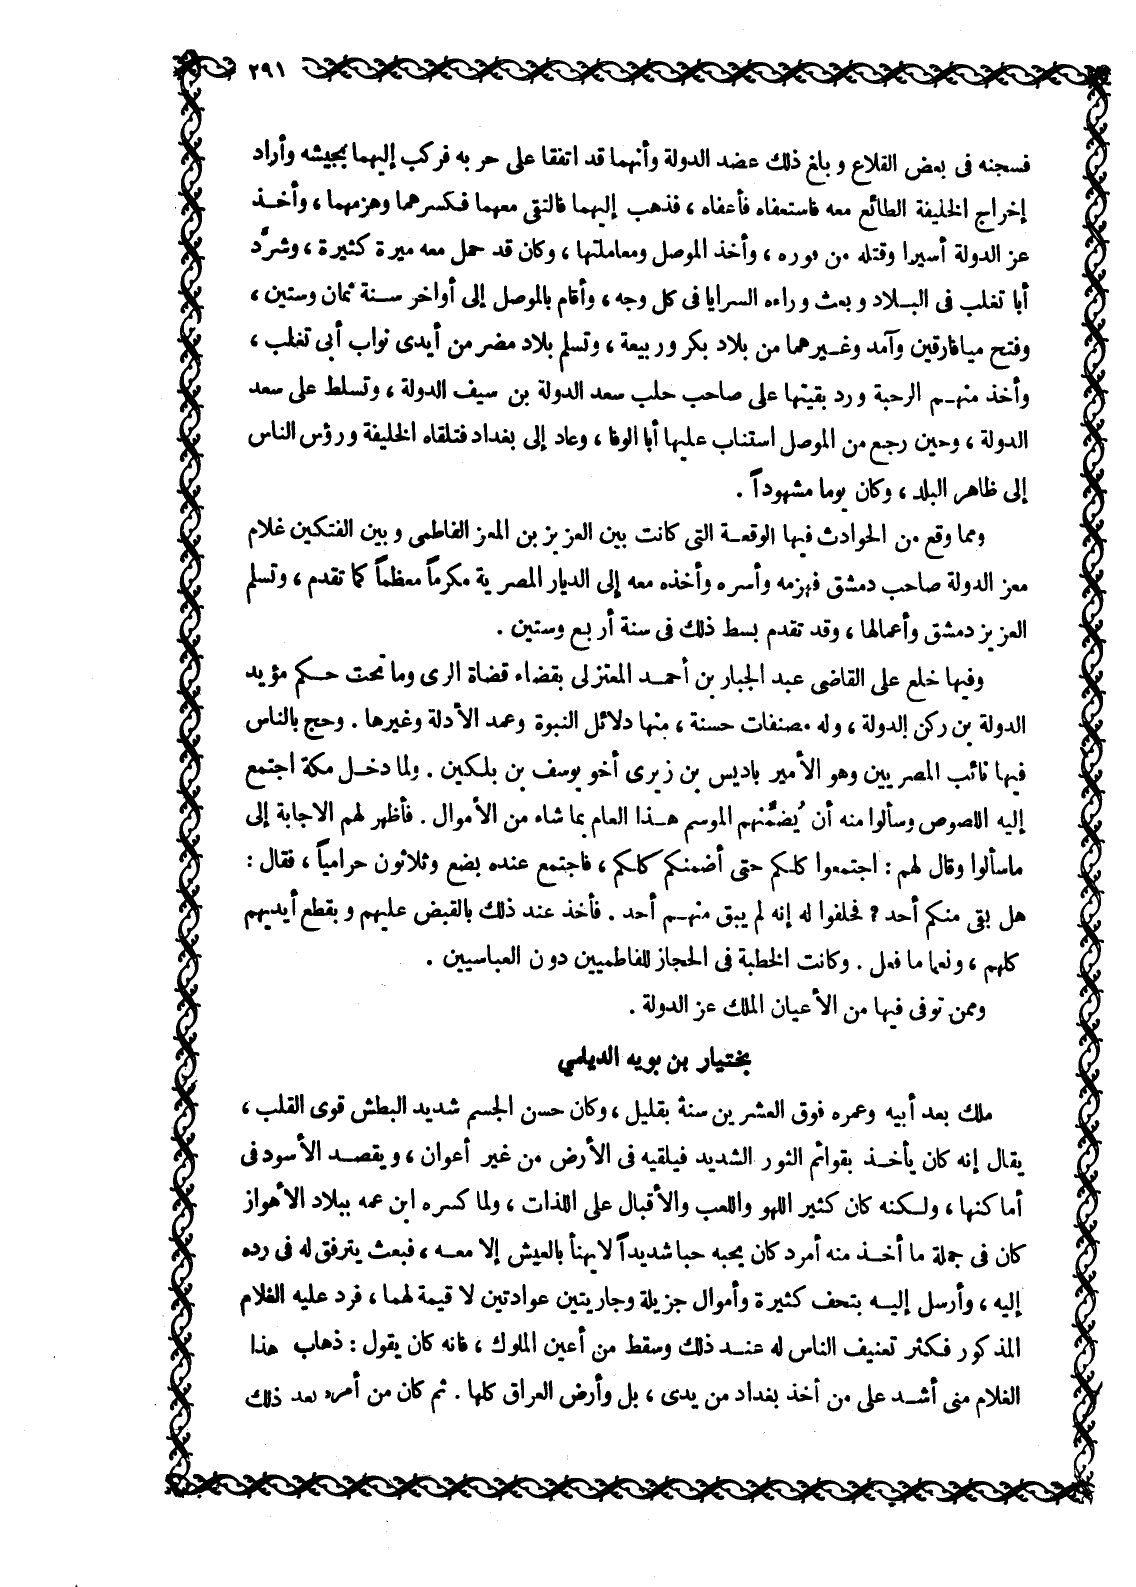 ٢٩١
فسجنه فى بعض القلاع وبلغ ذلك عضد الدولة وأنهما قد اتفقا على حربه فركب إليهما بجيشه وأراد
إخراج الخليفة الطائع معه فاستعفاه فأعفاه ، فذهب إليهما فالتقى معهما فكسرهما وهزمهما ، وأخذ
عز الدولة أسيرا وقتله من فوره ، وأخذ الموصل ومعاملتها ، وكان قد حمل معه ميرة كثيرة ، وشرَّد
أبا تغلب فى البلاد وبعث وراءه السرايا فى كل وجه ، وأقام بالموصل إلى أواخر سنة ثمان وستين ،
وفتح ميافارقين وآمد وغيرهما من بلاد بكر وربيعة ، وتسلم بلاد مضر من أيدى نواب أبى تغلب ،
وأخذ منهم الرحبة ورد بقيتها على صاحب حلب سعد الدولة بن سيف الدولة ، وتسلط على سعد
الدولة ، وحين رجع من الموصل استناب عليها أبا الوفا ، وعاد إلى بغداد فتلقاه الخليفة ورؤس الناس
إلى ظاهر البلد ، وكان يوما مشهوداً .
ومما وقع من الحوادث فيها الوقعة التى كانت بين العزيز بن المعز الفاطمى وبين الفتكين غلام
معز الدولة صاحب دمشق فهزمه وأسره وأخذه معه إلى الديار المصرية مكرماً معظماً كما تقدم ، وتسلم
العزيز دمشق وأعمالها ، وقد تقدم بسط ذلك فى سنة أربع وستين .
وفيها خلع على القاضى عبد الجبار بن أحمد المعتزلى بقضاء قضاة الرى وما تحت حكم مؤيد
الدولة بن ركن الدولة ، وله مصنفات حسنة ، منها دلائل النبوة وعمد الأدلة وغيرها . وحج بالناس
فيها نائب المصريين وهو الأمير باديس بن زيرى أخو يوسف بن بلكين . ولما دخل مكة اجتمع
إليه اللصوص وسألوا منه أن يُضمِّنهم الموسم هذا العام بما شاء من الأموال . فأظهر لهم الاجابة إلى
ماسألوا وقال لهم : اجتمعوا كلكم حتى أضمنكم كلكم ، فاجتمع عنده بضع وثلاثون حرامياً ، فقال :
هل بقى منكم أحد ? فحلفوا له إنه لم يبق منهم أحد . فأخذ عند ذلك بالقبض عليهم وبقطع أيديهم
كلهم ، ونعما ما فعل . وكانت الخطبة فى الحجاز للفاطميين دون العباسيين .
وممن توفى فيها من الأعيان الملك عز الدولة .
بختيار بن بويه الديلمي
ملك بعد أبيه وعمره فوق العشرين سنة بقليل ، وكان حسن الجسم شديد البطش قوى القلب ،
يقال إنه كان يأخذ بقوائم الثور الشديد فيلقيه فى الأرض من غير أعوان ، ويقصد الأسود فى
أماكنها ، ولكنه كان كثير اللهو واللعب والأقبال على اللذات ، ولما كسره ابن عمه ببلاد الأهواز
كان فى جملة ما أخذ منه أمرد كان يحبه حبا شديداً لايهنأ بالعيش إلا معه ، فبعث يترفق له فى رده
إليه ، وأرسل إليه بتحف كثيرة وأموال جزيلة وجاريتين عوادتين لا قيمة لهما ، فرد عليه الغلام
المذكور فكثر تعنيف الناس له عند ذلك وسقط من أعين الملوك ، فانه كان يقول : ذهاب هذا
الغلام منى أشد على من أخذ بغداد من يدى ، بل وأرض العراق كلها . ثم كان من أمره بعد ذلك